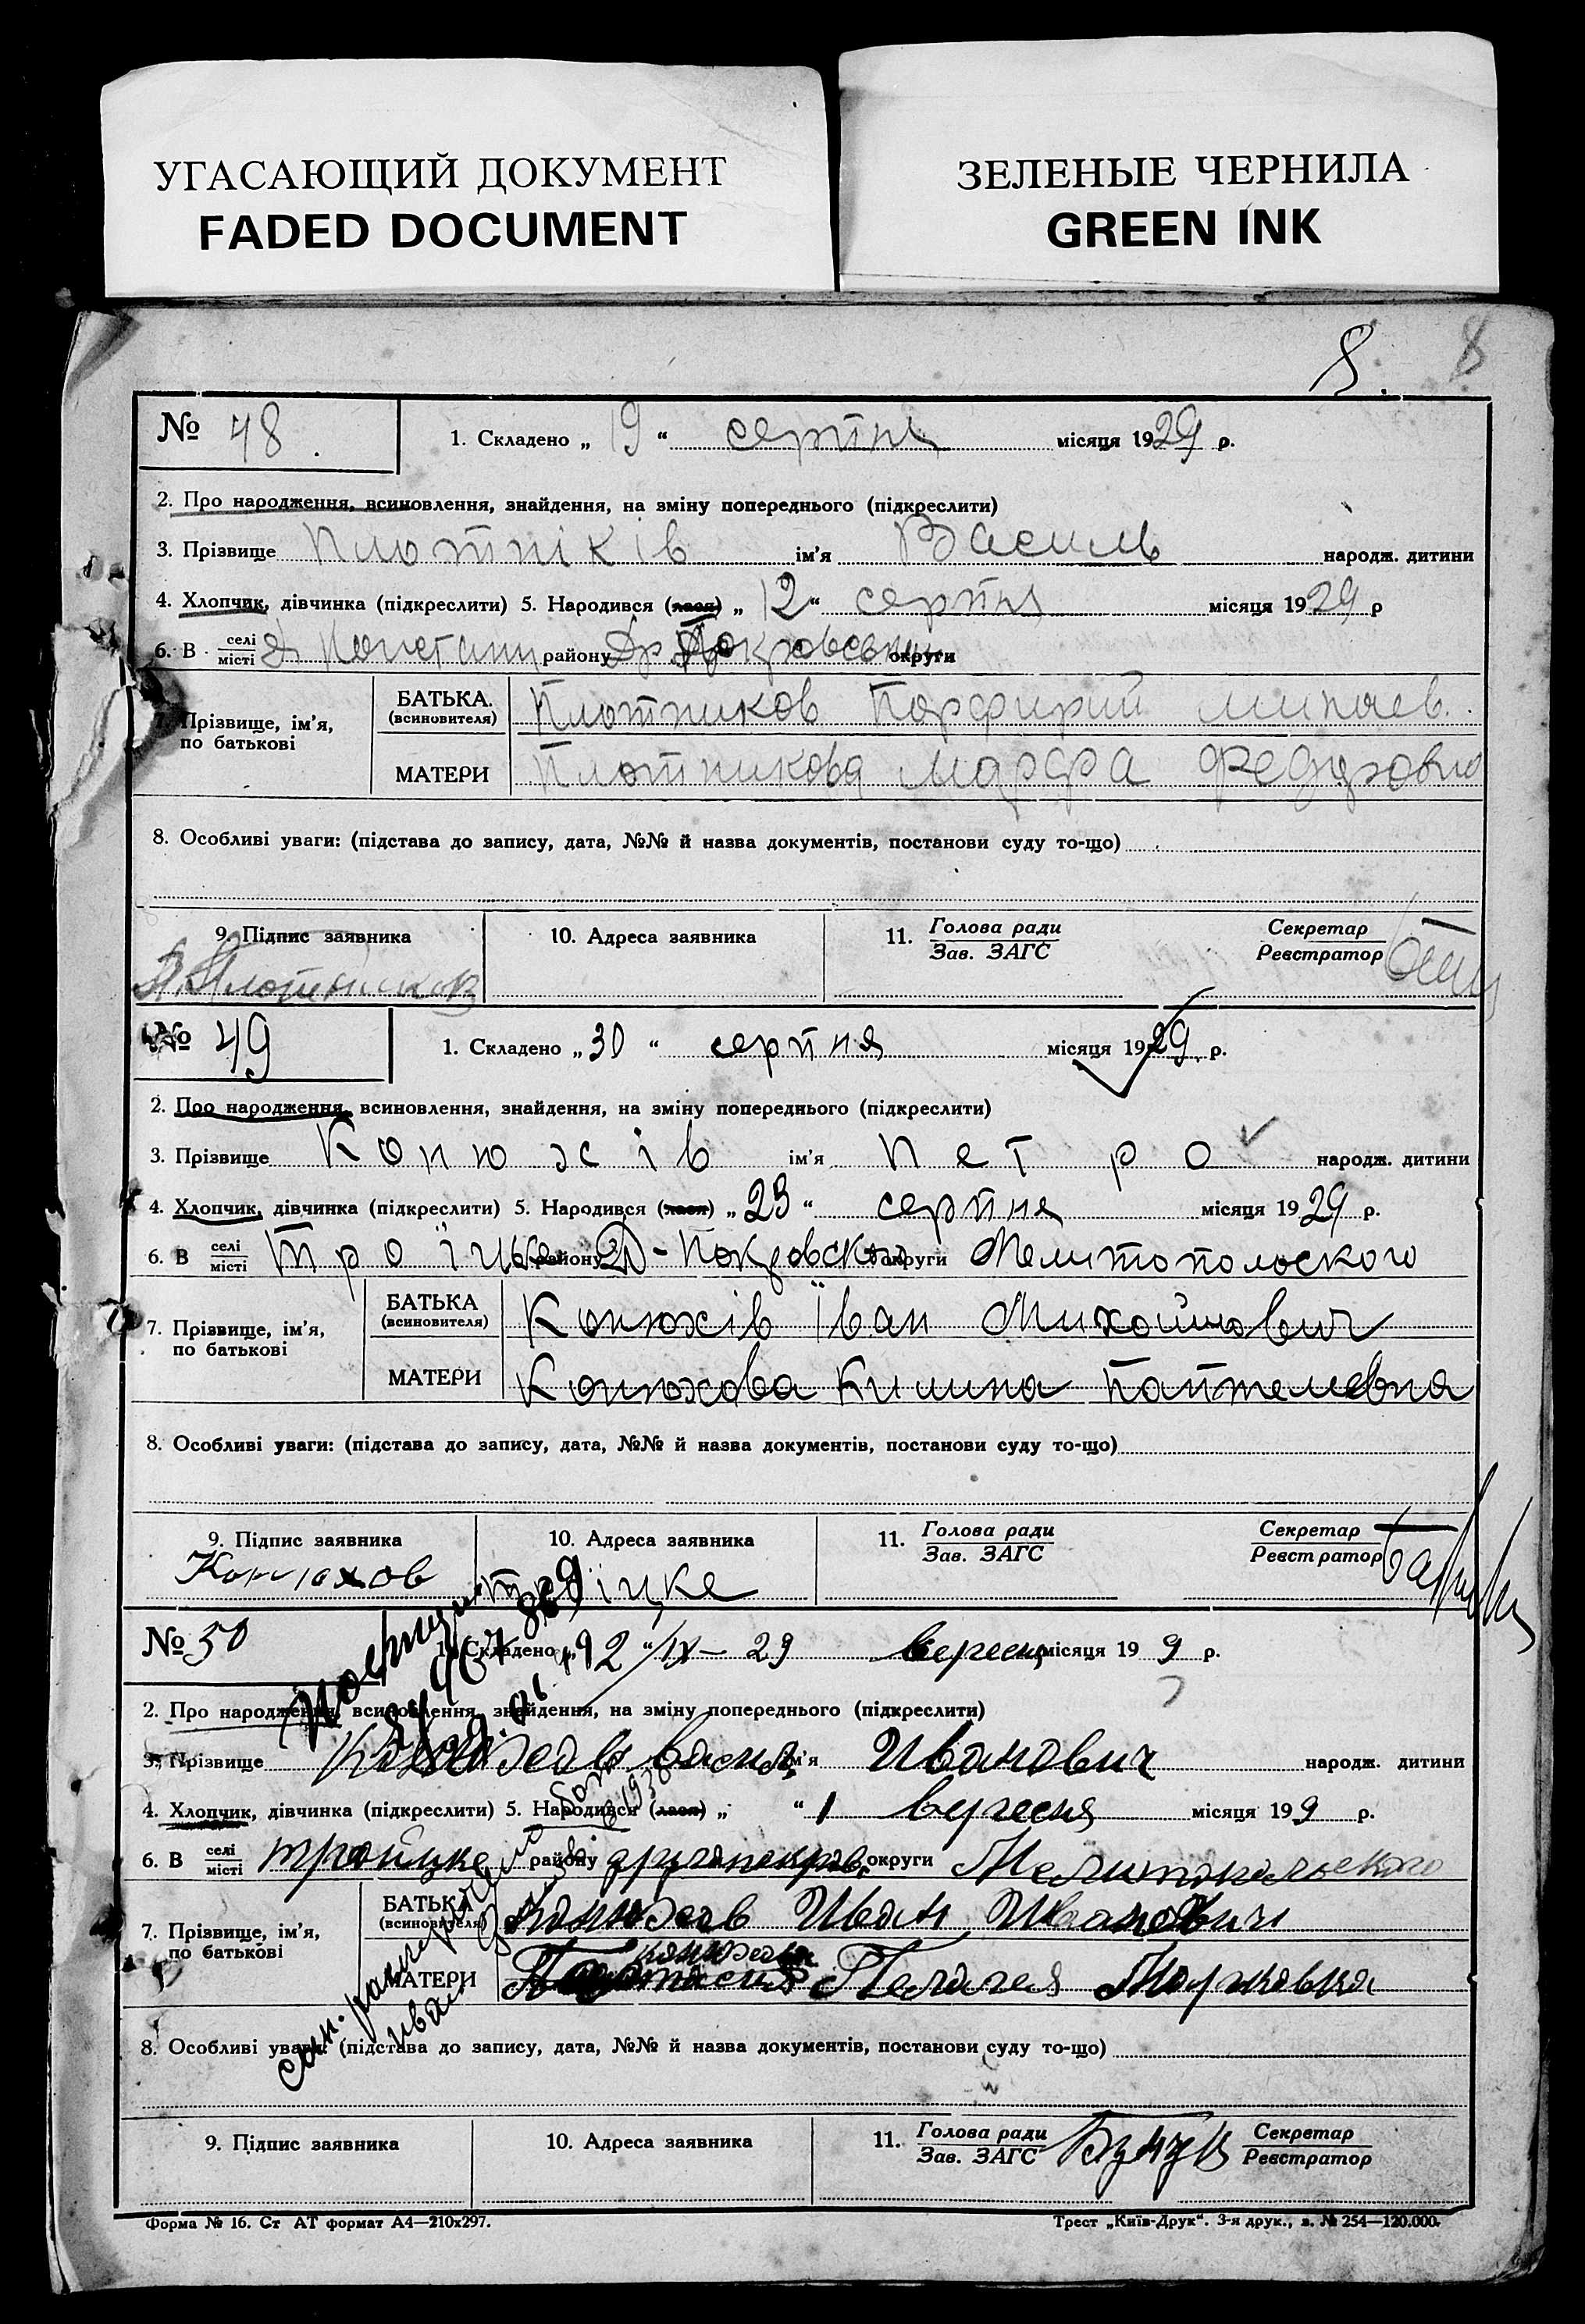 УГАСАЮЩИЙ ДОКУМЕНТ
FADED DOCUMENT
ЗЕЛЕНЫЕ ЧЕРНИЛА
GREEN INK
8. 8
№ 48. 1. Складено „ 19 “ серпня місяця 1929 р.
2. Про народження, всиновлення, знайдення, на зміну попереднього (підкреслити)
3. Прізвище Плотніків ім'я Василь народж. дитини
4. Хлопчик, дівчинка (підкреслити) 5. Народився (лася) „ 12 “ серпня місяця 1929 р
6. В селі/місті району округи
7. Прізвище, ім'я, по батькові
БАТЬКА. (всиновителя) Плотников Порфирий
МАТЕРИ Плотникова Марфа Федоровна
8. Особливі уваги: (підстава до запису, дата, №№ й назва документів, постанови суду то-що)
9. Підпис заявника 10. Адреса заявника 11. Голова ради/Зав. ЗАГС Секретар/Реєстратор
Плотников
№ 49 1. Складено „ 30 “ серпня місяця 1929 р.
2. Про народження, всиновлення, знайдення, на зміну попереднього (підкреслити)
3. Прізвище Конюхів ім'я Петро народж. дитини
4. Хлопчик, дівчинка (підкреслити) 5. Народився (лася) „ 23 “ серпня місяця 1929 р.
6. В селі/місті Троїцке району Д-Покровского округи Мелитопольского
7. Прізвище, ім'я, по батькові
БАТЬКА (всиновителя) Конюхів Іван Михайлович
МАТЕРИ Конюхова Килина Пантелеевна
8. Особливі уваги: (підстава до запису, дата, №№ й назва документів, постанови суду то-що)
9. Підпис заявника 10. Адреса заявника 11. Голова ради/Зав. ЗАГС Секретар/Реєстратор
Конюхов Троїцке
№ 50 1. Складено „ 12 “/IX-29 вересня місяця 199 р.
2. Про народження, всиновлення, знайдення, на зміну попереднього (підкреслити)
3. Прізвище ім'я Иванович народж. дитини
4. Хлопчик, дівчинка (підкреслити) 5. Народився (лася) „ “ 1 вересня місяця 199 р.
6. В селі/місті Тройцке району другопокров. округи Мелитопольского
7. Прізвище, ім'я, по батькові
БАТЬКА (всиновителя) Конюхов Иван Иванович
МАТЕРИ Конюхова Пелагея Марковна
8. Особливі уваги: (підстава до запису, дата, №№ й назва документів, постанови суду то-що)
9. Підпис заявника 10. Адреса заявника 11. Голова ради/Зав. ЗАГС Секретар/Реєстратор
Форма № 16. Ст АТ формат А4—210х297. Трест „Київ-Друк“. 3-я друк., з. № 254—120.000.